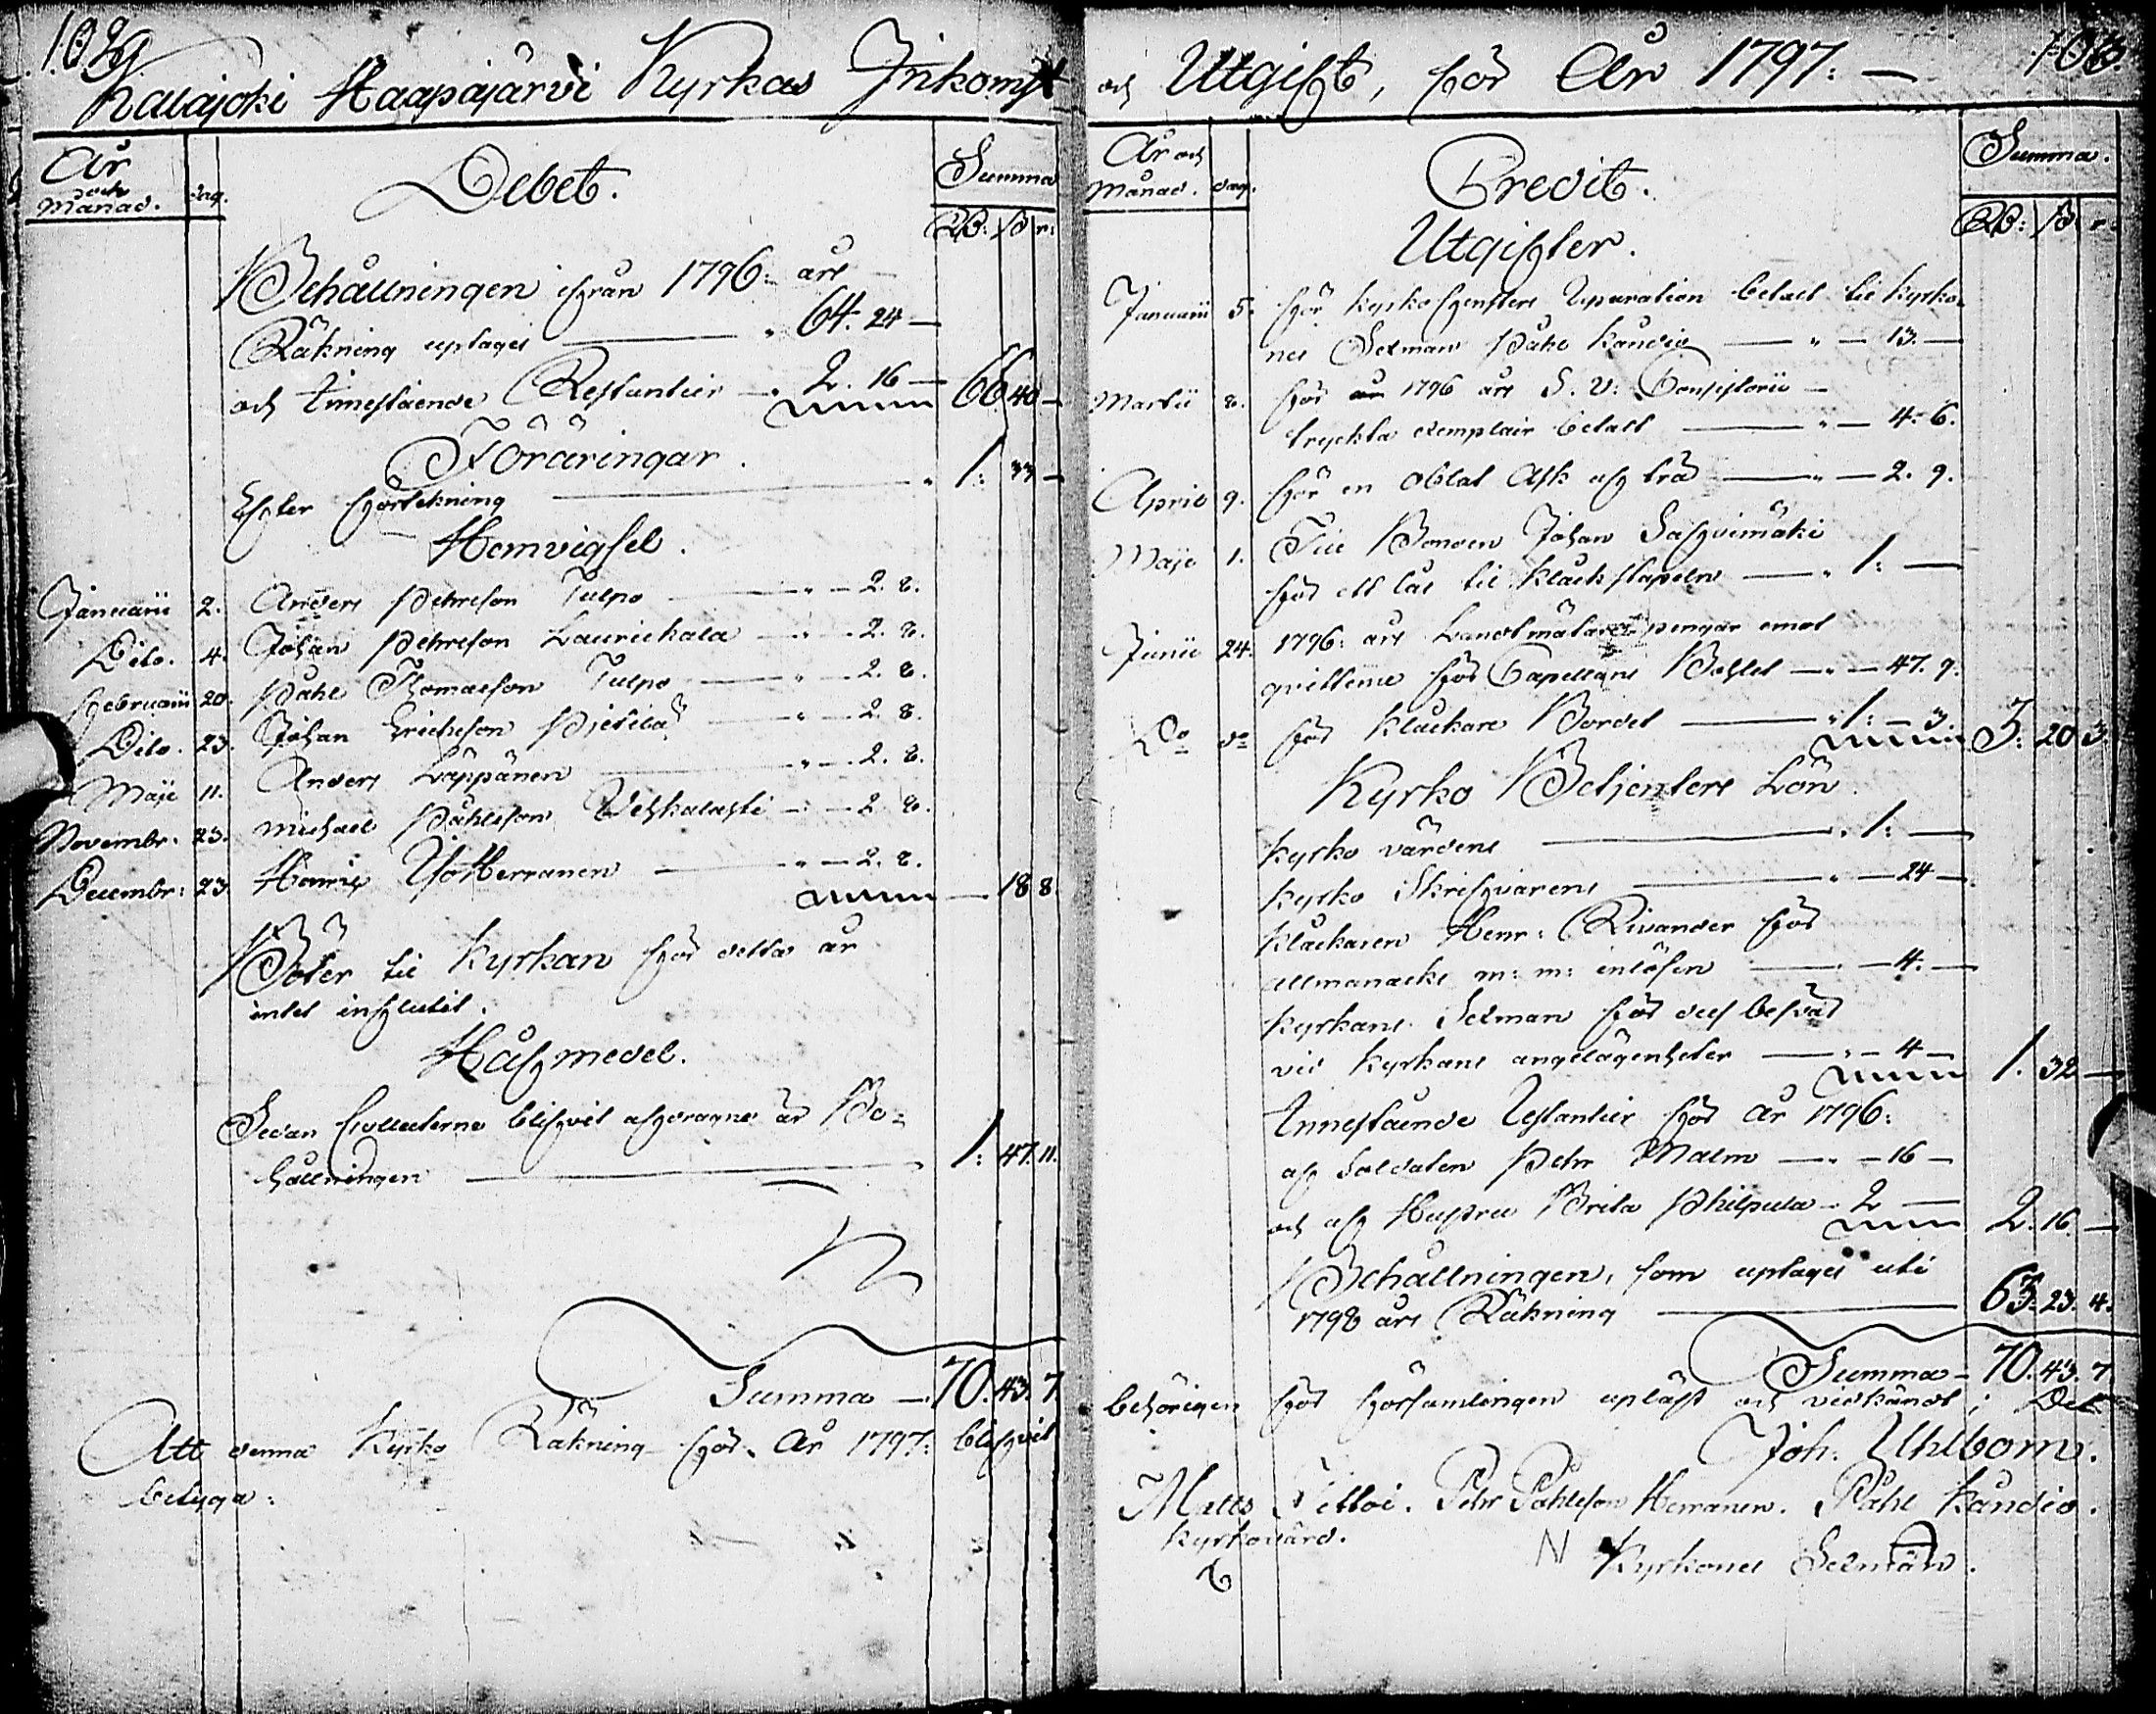 Kalajoki Haapajärvi Kyrkas Inkomst
År och Månad. dag. Debet. Summa
RD: ß r:
Behållningen ifrån 1796: års
Räkning uptages " 64. 24 —
och Innestående Restantier — " 2. 16 — 66 40 —
Föräringar.
Efter förtekning " 1: 33 —
Hemvigsel.
Januarii 2. Anders Pehrsson Tulpo " — 2. 8.
Dito. 4. Johan Pehrsson Laurickala " — 2. 8.
Februarii 20. Påhl Thomasson Tulpo " — 2. 8.
Dito. 23. Johan Ericksson Pietilä " — 2. 8.
Maji 11. Anders Läppänen " — 2. 8.
Novembr. 23. Michael Påhlsson " — 2. 8.
Decembr: 23 Henric Herranen " — 2. 8. — 18 8.
Böter til Kyrkan för detta år
intet influtit.
Håfmedel.
Sedan Collecterne blifvit afdragne är Be=
hållningen " 1: 47. 11.
Summa — 70. 43. 7
Att denna Kyrko Räkning för År 1797: blifvit
betyga:
och Utgift, för År 1797: —
År och Månad. dag. Credit. Summa.
RD: ß r.
Utgifter.
Januarii 5. för Kyrko fenstrens reparation betalt til Kyrko-
nes Sexman Påhl Kandio " — 13. —
Martii 8. för 1796 års S. V. Consistorii —
tryckta exemplair betalt " — 4. 6.
April 9. för en oblat Ask af trä " — 2. 9.
Maji 1. Til Bonden Johan
för ett lås til Klåckstapeln " 1: —
Junii 24. 1796: års Landtmätare pengar emot
qvittence för Capellans Bohlet " — 47. 9.
Do do för Klåckare Bordet " 1: — 3. 3: 20 3.
Kyrko Betjenters Lön.
Kyrko värdens " 1: —
Kyrko Skrifvarens " — 24 —
Klåckaren Henr: Rivander för
allmanachs m: m: inlösen — 4. —
Kyrkans Sexman för dess besvär
vid Kyrkans angelägenheter " — 4 — 1. 32 —
Innestående restantier för År 1796:
af Soldaten Pehr Malm " — 16 —
och af Hustru Brita Philpula — 2 — 2. 16. —
Behållningen, som uptages uti
1798 års Räkning 63. 23. 4.
Summa — 70. 43. 7
behörigen för församlingen upläst och vidkändt; Det
Joh. Uhlbom.
Matts Pehr Påhlsson Herranen. Påhl Kandio.
Kyrkovärd.
N Kyrkones Sexmän.